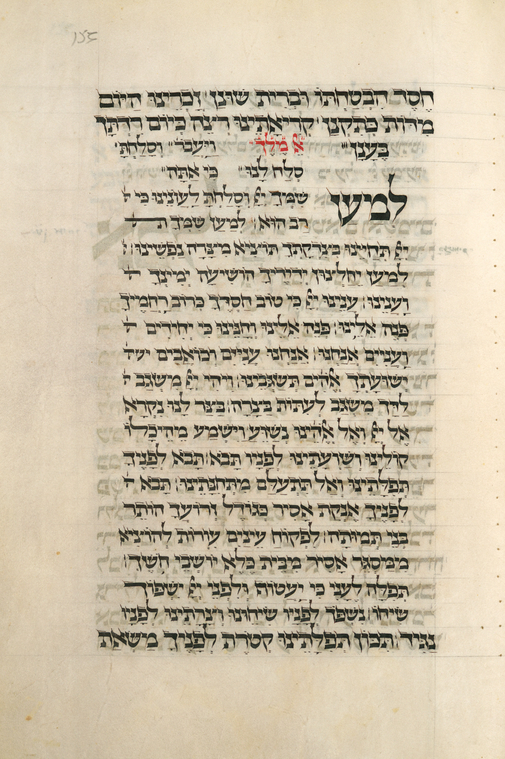 חסד הבטחתו וברית שונן זכרינו היום
מידות כתקנן קריאתינו רצה כיום רדתך
בענן א מלך ויעבר וסלחת
סלח לנו כי אתה
למען שמך יי וסלחת לעונינו כי
רב הוא למען שמך
יי תחיינו בצדקתך תוציא מצרה נפשינו
למען יחלצון ידידיך הושיעה ימינך
וענינו עניינו יי כי טוב חסדך כרוב רחמיך
פנה אלינו פנה אלינו וחנינו כי יחידים
ועניים אנחנו אנחנו עניים וכואבים
ישועתך אלהים תשגבינו ויהי יי משגב
לדך משגב לעתות בצרה בצר לנו נקרא
אל יי ואל אלהינו נשוע וישמע מהיכלו
קולינו ושועתינו לפניו תבא תבא לפניך
תפלתינו ואל תתעלם מתחנתינו תבא
לפניך אנקת אסיר כגודל זרועך הותר
בני תמותה לפקוח עינים עורות להוציא
ממסגר אסיר מבית כלא יושבי חשך
תפלה לעני כי יעטוף ולפני יי ישפוך
שיחו נשפך לפניו שיחנו וצרתינו לפניו
נגיד תכון תפלתינו קטרת לפניך משאת